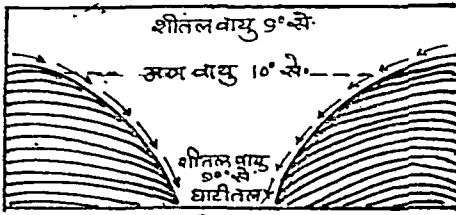 शीतल वायु 9° से.
वायु 10° से.
शीतल वायु
से.
घाटीतल